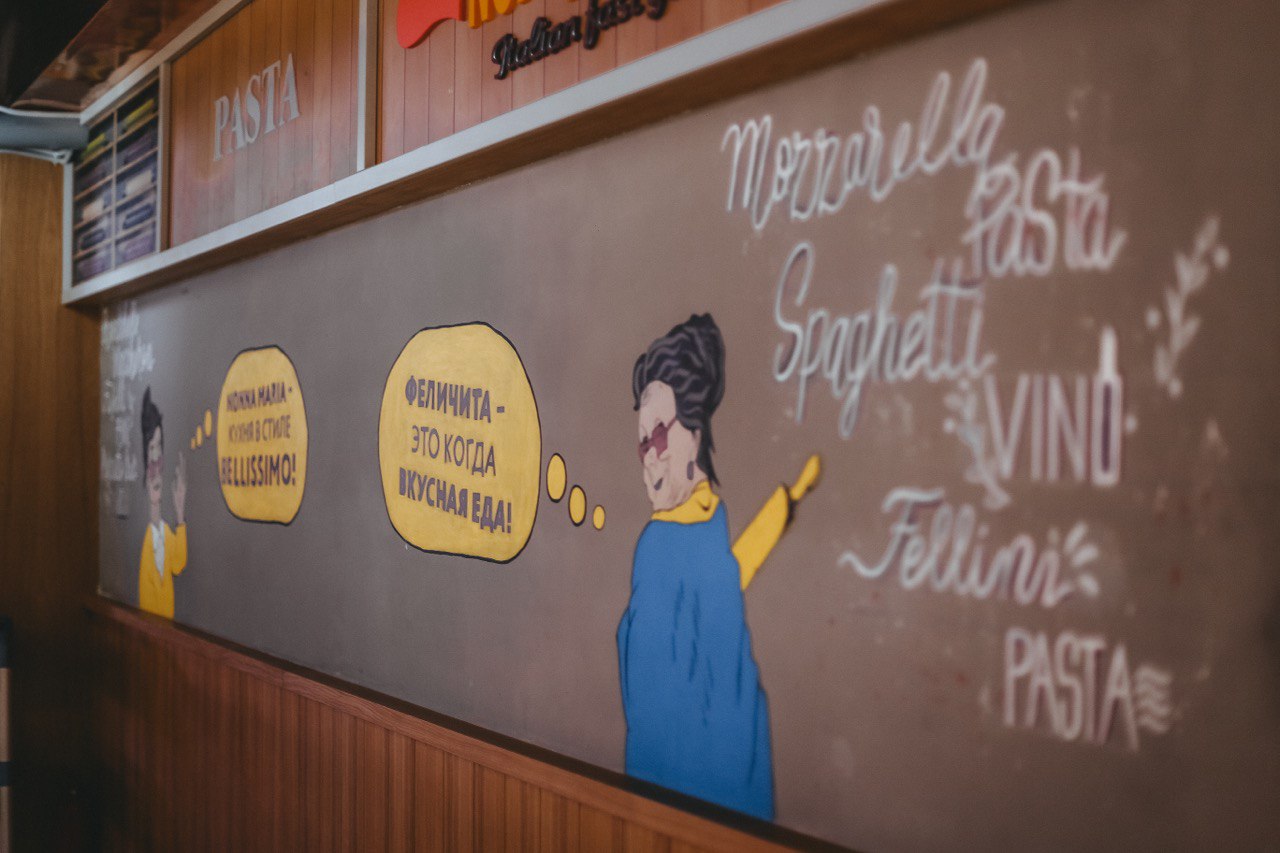 PASTA
Italian fast
NONNA MARIA -
КУХНЯ В СТИЛЕ
BELLISSIMO!
ФЕЛИЧИТА -
ЭТО КОГДА
ВКУСНАЯ ЕДА!
Mozzarella
Pasta
Spaghetti
VINO
Fellini
PASTA